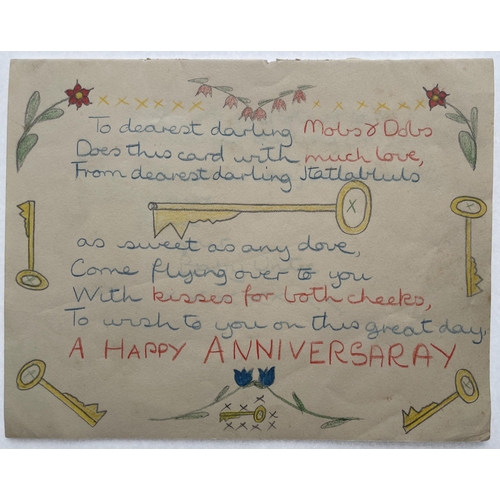 To dearest darling Mobs & Dobs
Does this card with much love,
From dearest darling
as sweet as any dove,
Come flying over to you
With kisses for both cheeks,
To wish to you on this great day.
A HAPPY ANNIVERSARAY